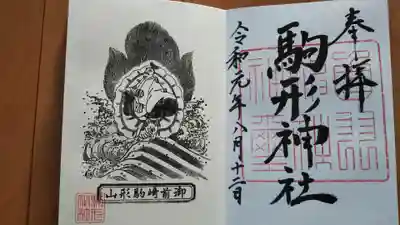 奉拝
駒形神社
令和元年八月十二日
御前崎駒形山